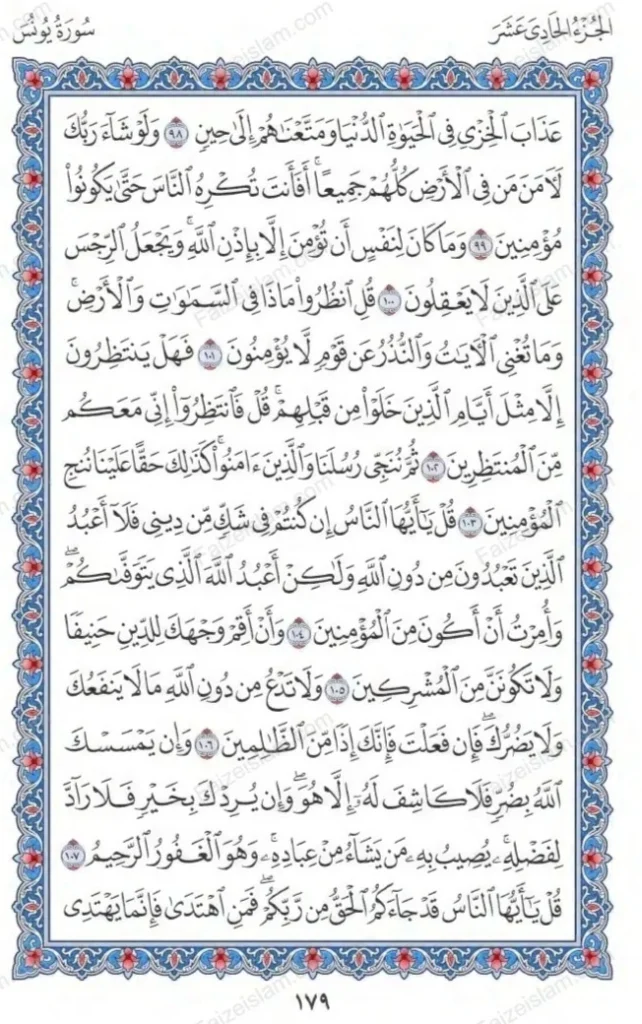 الجُزْءُ الحَادِيَ عَشَرَ
سُورَةُ يُونُسَ
عَذَابَ ٱلْخِزْىِ فِى ٱلْحَيَوٰةِ ٱلدُّنْيَا وَمَتَّعْنَٰهُمْ إِلَىٰ حِينٍ ٩٨ وَلَوْ شَآءَ رَبُّكَ
لَءَامَنَ مَن فِى ٱلْأَرْضِ كُلُّهُمْ جَمِيعًا ۚ أَفَأَنتَ تُكْرِهُ ٱلنَّاسَ حَتَّىٰ يَكُونُوا۟
مُؤْمِنِينَ ٩٩ وَمَا كَانَ لِنَفْسٍ أَن تُؤْمِنَ إِلَّا بِإِذْنِ ٱللَّهِ ۚ وَيَجْعَلُ ٱلرِّجْسَ
عَلَى ٱلَّذِينَ لَا يَعْقِلُونَ ١٠٠ قُلِ ٱنظُرُوا۟ مَاذَا فِى ٱلسَّمَٰوَٰتِ وَٱلْأَرْضِ ۚ
وَمَا تُغْنِى ٱلْءَايَٰتُ وَٱلنُّذُرُ عَن قَوْمٍ لَّا يُؤْمِنُونَ ١٠١ فَهَلْ يَنتَظِرُونَ
إِلَّا مِثْلَ أَيَّامِ ٱلَّذِينَ خَلَوْا۟ مِن قَبْلِهِمْ ۚ قُلْ فَٱنتَظِرُوٓا۟ إِنِّى مَعَكُم
مِّنَ ٱلْمُنتَظِرِينَ ١٠٢ ثُمَّ نُنَجِّى رُسُلَنَا وَٱلَّذِينَ ءَامَنُوا۟ ۚ كَذَٰلِكَ حَقًّا عَلَيْنَا نُنجِ
ٱلْمُؤْمِنِينَ ١٠٣ قُلْ يَٰٓأَيُّهَا ٱلنَّاسُ إِن كُنتُمْ فِى شَكٍّ مِّن دِينِى فَلَآ أَعْبُدُ
ٱلَّذِينَ تَعْبُدُونَ مِن دُونِ ٱللَّهِ وَلَٰكِنْ أَعْبُدُ ٱللَّهَ ٱلَّذِى يَتَوَفَّىٰكُمْ ۖ
وَأُمِرْتُ أَنْ أَكُونَ مِنَ ٱلْمُؤْمِنِينَ ١٠٤ وَأَنْ أَقِمْ وَجْهَكَ لِلدِّينِ حَنِيفًا
وَلَا تَكُونَنَّ مِنَ ٱلْمُشْرِكِينَ ١٠٥ وَلَا تَدْعُ مِن دُونِ ٱللَّهِ مَا لَا يَنفَعُكَ
وَلَا يَضُرُّكَ ۖ فَإِن فَعَلْتَ فَإِنَّكَ إِذًا مِّنَ ٱلظَّٰلِمِينَ ١٠٦ وَإِن يَمْسَسْكَ
ٱللَّهُ بِضُرٍّ فَلَا كَاشِفَ لَهُۥٓ إِلَّا هُوَ ۖ وَإِن يُرِدْكَ بِخَيْرٍ فَلَا رَآدَّ
لِفَضْلِهِۦ ۚ يُصِيبُ بِهِۦ مَن يَشَآءُ مِنْ عِبَادِهِۦ ۚ وَهُوَ ٱلْغَفُورُ ٱلرَّحِيمُ ١٠٧
قُلْ يَٰٓأَيُّهَا ٱلنَّاسُ قَدْ جَآءَكُمُ ٱلْحَقُّ مِن رَّبِّكُمْ ۖ فَمَنِ ٱهْتَدَىٰ فَإِنَّمَا يَهْتَدِى
١٧٩
Faizeislam.com